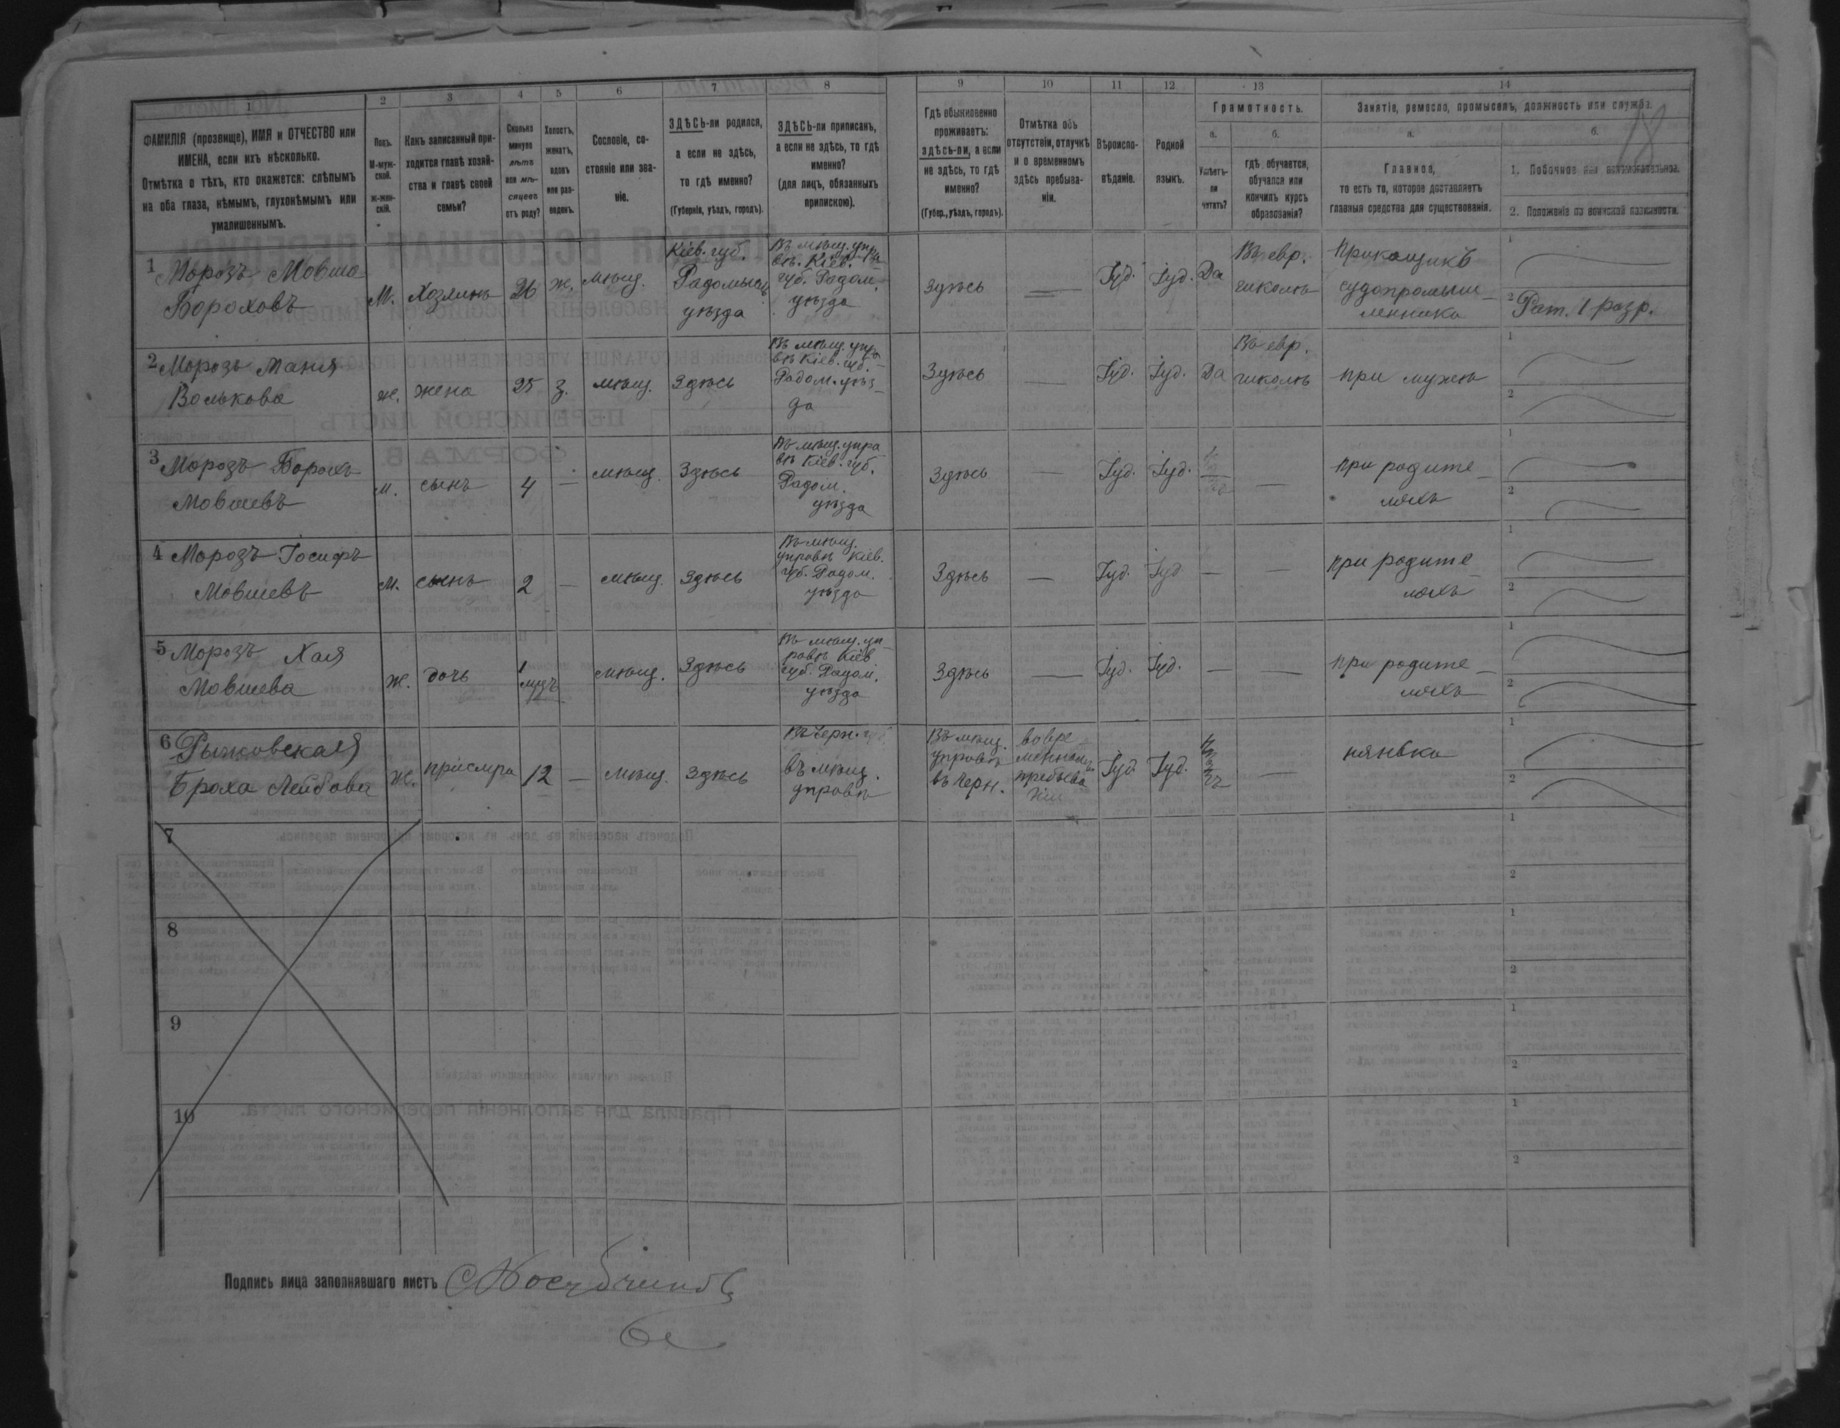 1 2 3 4 5 6 7 8 9 10 11 12 13 14
ФАМИЛІЯ (прозвище), ИМЯ и ОТЧЕСТВО или
ИМЕНА, если ихъ нѣсколько.
Отмѣтка о тѣхъ, кто окажется: слѣпымъ
на оба глаза, нѣмымъ, глухонѣмымъ или
умалишеннымъ.
Полъ.
М-муж-
ской.
Ж-жен-
скій.
Какъ записанный при-
ходится главѣ хозяй-
ства и главѣ своей
семьи?
Сколько
минуло
лѣтъ
или мѣ-
сяцевъ
отъ роду?
Холостъ,
женатъ,
вдовъ
или раз-
веденъ.
Сословіе, со-
стояніе или зва-
ніе.
ЗДѢСЬ-ли родился,
а если не здѣсь,
то гдѣ именно?
(Губернія, уѣздъ, городъ).
ЗДѢСЬ-ли приписанъ,
а если не здѣсь, то гдѣ
именно?
(для лицъ, обязанныхъ
припискою).
Гдѣ обыкновенно
проживаетъ:
здѣсь-ли, а если
не здѣсь, то гдѣ
именно?
(Губер., уѣздъ, городъ).
Отмѣтка объ
отсутствіи, отлучкѣ
и о временномъ
здѣсь пребыва-
ніи.
Вѣроиспо-
вѣданіе.
Родной
языкъ.
Грамотность.
а. б.
Умѣетъ-
ли
читать?
гдѣ обучается,
обучался или
кончилъ курсъ
образованія?
Занятіе, ремесло, промыселъ, должность или служба.
а. б.
Главное,
то есть то, которое доставляетъ
главныя средства для существованія.
1. Побочное или вспомогательное.
2. Положеніе по воинской повинности.
18
1 Морозъ Мовша
Бороховъ
М.
Хозяинъ
26
ж.
мѣщ.
Кіев. губ.
Радомысль.
уѣзда
Въ мѣщ. упра
вѣ. Кіев.
губ. Радом.
уѣзда
Здѣсь
Іуд.
Іуд.
Да
Въ евр.
школѣ
Прикащикъ
судопромыш
ленника
1
2 Рат. 1 разр.
2 Морозъ Маня
Волькова
ж.
жена
25
з.
мѣщ.
Здѣсь
Въ мѣщ. упра
вѣ Кіев. губ.
Радом. уѣз
да
Здѣсь
Іуд.
Іуд.
Да
Въ евр.
школѣ
при мужѣ
1
2
3 Морозъ Борохъ
Мовшевъ
м.
сынъ
4
—
мѣщ.
Здѣсь
Въ мѣщ. упра
вѣ Кіев. губ.
Радом.
уѣзда
Здѣсь
—
Іуд.
Іуд.
—
при родите
ляхъ
1
2
4 Морозъ Іосифъ
Мовшевъ
м.
сынъ
2
—
мѣщ.
Здѣсь
Въ мѣщ.
управѣ Кіев.
губ. Радом.
уѣзда
Здѣсь
—
Іуд.
Іуд
—
—
при родите
ляхъ
1
2
5 Морозъ Хая
Мовшева
ж.
дочь
1
—
мѣщ.
Здѣсь
Въ мѣщ. уп
равѣ Кіев
губ. Радом.
уѣзда
Здѣсь
—
Іуд.
Іуд.
—
—
при родите
ляхъ
1
2
6
Броха Лейбова
ж.
12
—
мѣщ.
Здѣсь
Въ Черн.
въ мѣщ.
управѣ
Въ мѣщ.
управѣ
въ Черн.
во вре
менномъ
пребыва
ніи
Іуд
Іуд.
—
нянька
1
2
7
1
2
8
1
2
9
1
2
10
1
2
Подпись лица заполнявшаго листъ